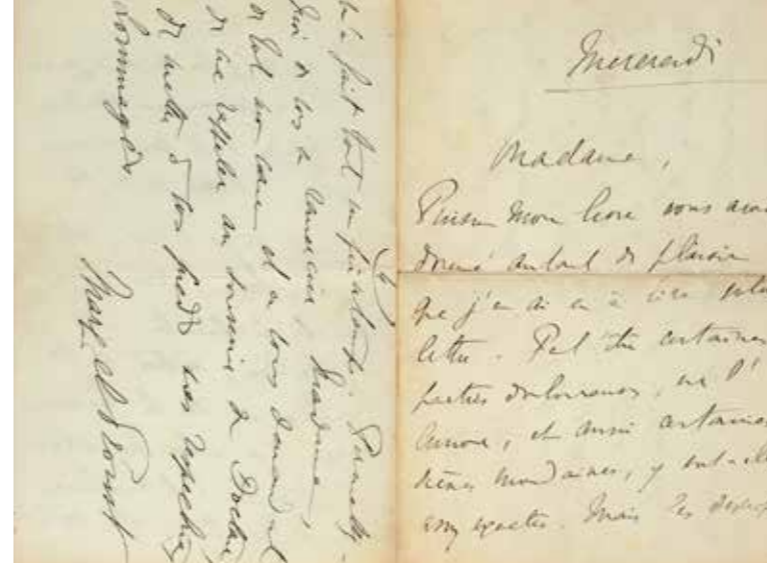 Mercredi
Madame,
Puisse mon livre vous avoir
donné autant de plaisir
que j'en ai eu à lire votre
lettre. Peut-être certaines
parties douloureuses, sur l'
amour, et aussi certaines
scènes mondaines, y sont-ils
assez exactes. Mais les
m'a fait tout un printemps. Permettez-
moi de vous en remercier, Madame,
de tout mon coeur et en vous demandant
de me rappeler au souvenir du Docteur
de mettre à vos pieds mes respectueux
hommages.
Marcel Proust